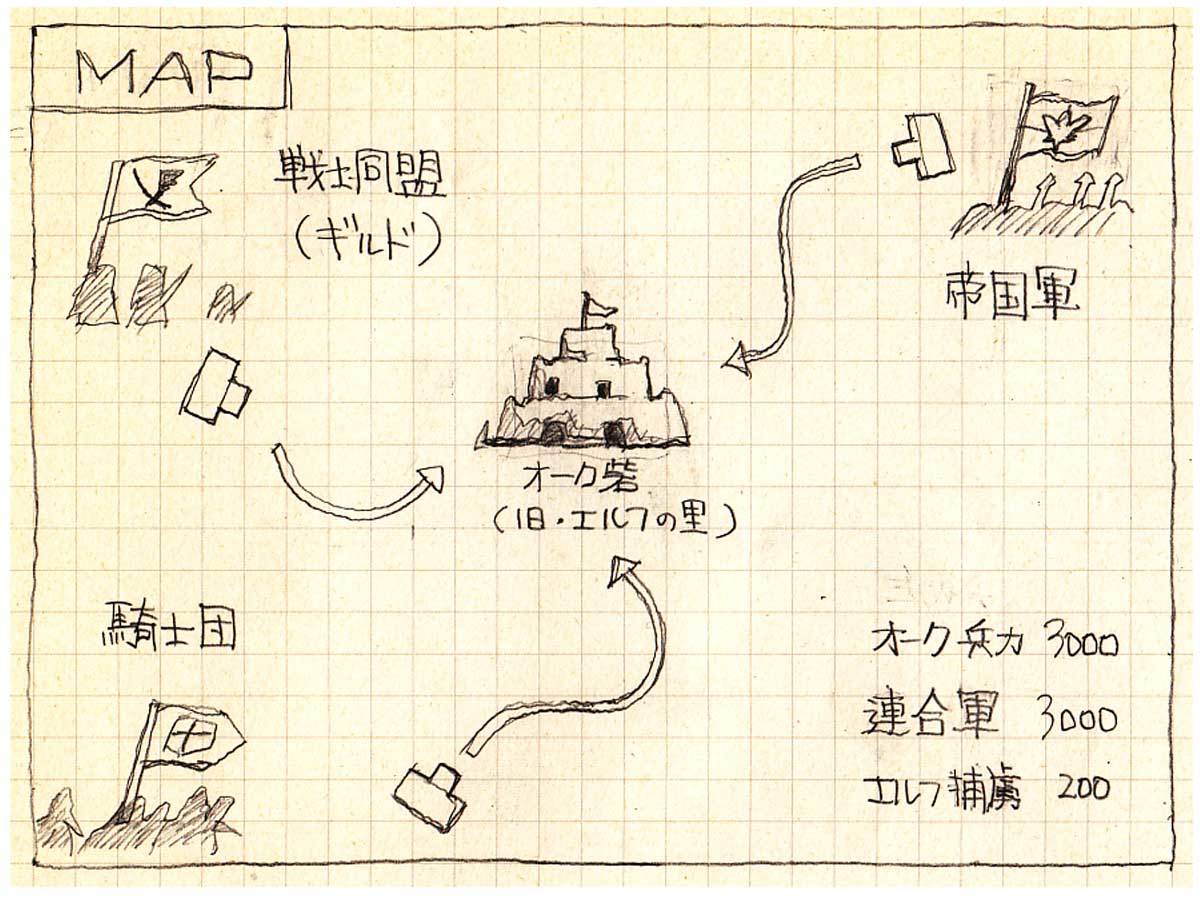 MAP
戦士同盟
(ギルド)
帝国軍
オーク砦
(旧・エルフの里)
騎士団
オーク兵力 3000
連合軍 3000
エルフ捕虜 200